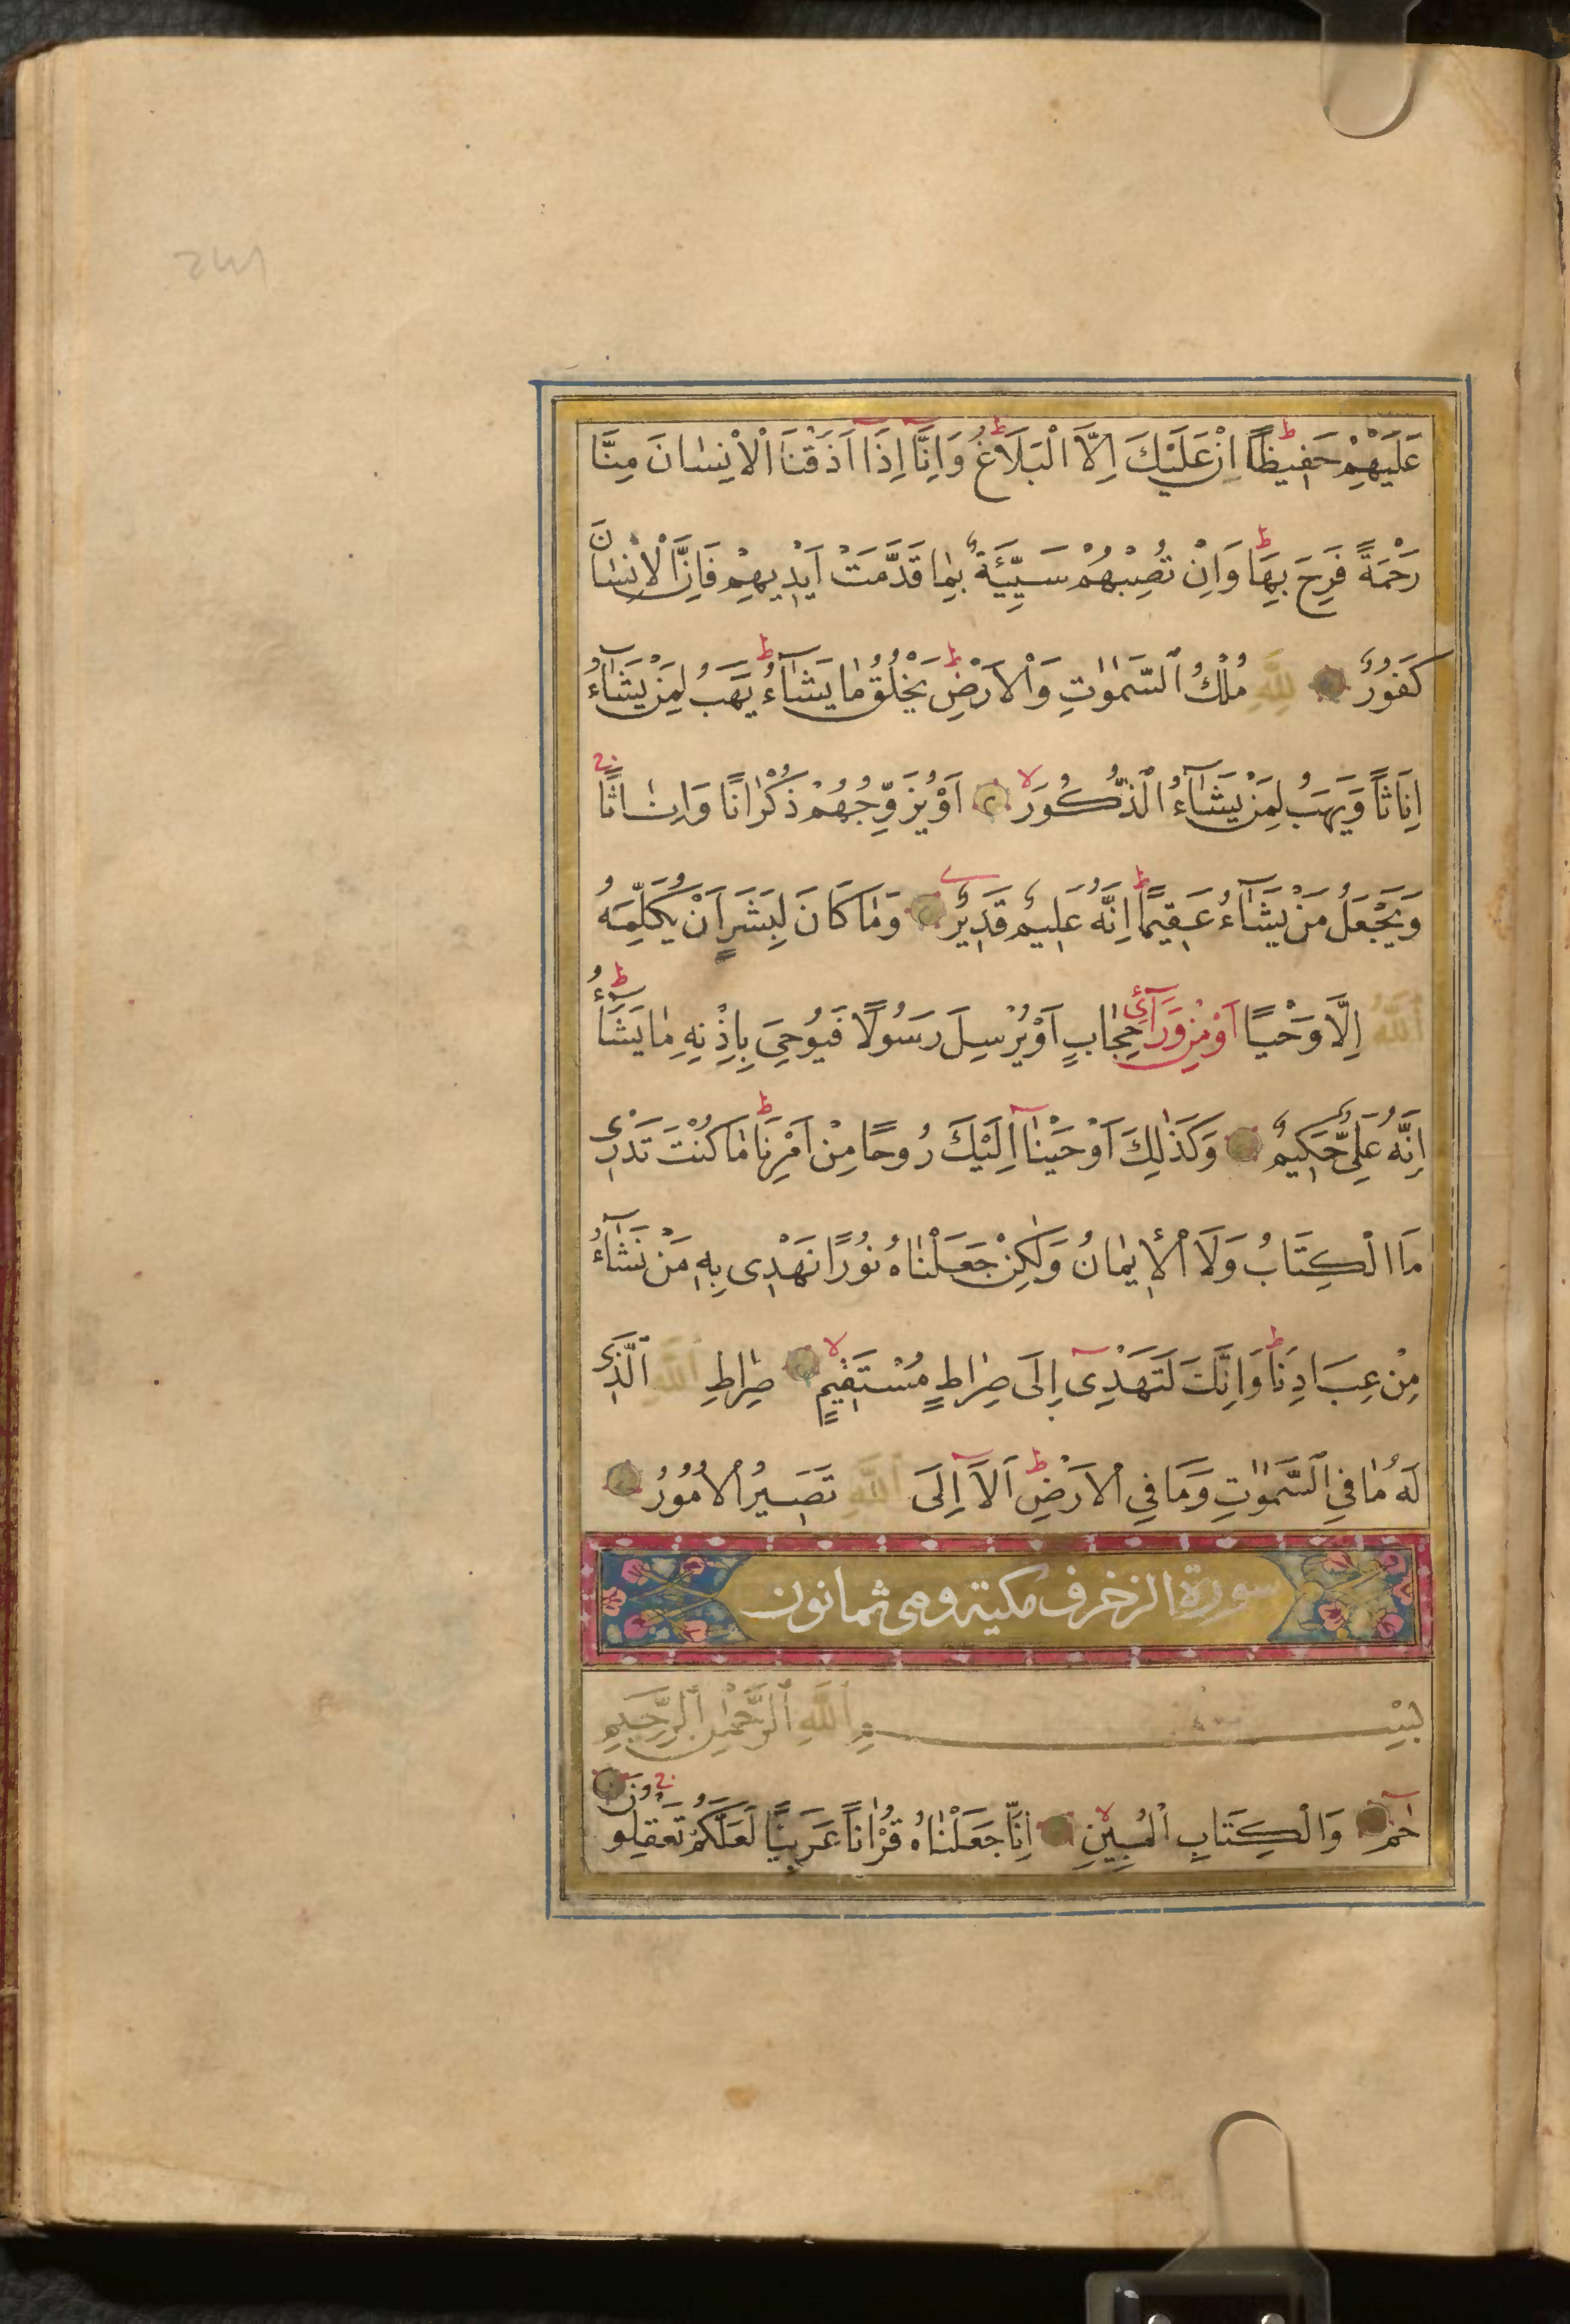 عَلَيْهِمْ حَفِيظًا ط اِنْ عَلَيْكَ اِلَّا الْبَلَاغُ ط وَاِنَّا اِذَا اَذَقْنَا الْاِنْسَانَ مِنَّا
رَحْمَةً فَرِحَ بِهَا ط وَاِنْ تُصِبْهُمْ سَيِّئَةٌ بِمَا قَدَّمَتْ اَيْدِيهِمْ فَاِنَّ الْاِنْسَانَ
كَفُورٌ لِلّٰهِ مُلْكُ السَّمٰوَاتِ وَالْاَرْضِ ط يَخْلُقُ مَا يَشَآءُ ط يَهَبُ لِمَنْ يَشَآءُ
اِنَاثًا وَيَهَبُ لِمَنْ يَشَآءُ الذُّكُورَ لا اَوْ يُزَوِّجُهُمْ ذُكْرَانًا وَاِنَاثًا ج
وَيَجْعَلُ مَنْ يَشَآءُ عَقِيمًا ط اِنَّهُ عَلِيمٌ قَدِيرٌ وَمَا كَانَ لِبَشَرٍ اَنْ يُكَلِّمَهُ
اللّٰهُ اِلَّا وَحْيًا اَوْ مِنْ وَرَآئِ حِجَابٍ اَوْ يُرْسِلَ رَسُولًا فَيُوحِيَ بِاِذْنِهِ مَا يَشَآءُ ط
اِنَّهُ عَلِيٌّ حَكِيمٌ وَكَذٰلِكَ اَوْحَيْنَآ اِلَيْكَ رُوحًا مِنْ اَمْرِنَا ط مَا كُنْتَ تَدْرِى
مَا الْكِتَابُ وَلَا الْاِيمَانُ وَلٰكِنْ جَعَلْنَاهُ نُورًا نَهْدِى بِهِ مَنْ نَشَآءُ
مِنْ عِبَادِنَا ط وَاِنَّكَ لَتَهْدِىٓ اِلَى صِرَاطٍ مُسْتَقِيمٍ لا صِرَاطِ اللّٰهِ الَّذِى
لَهُ مَا فِي السَّمٰوَاتِ وَمَا فِي الْاَرْضِ ط اَلَآ اِلَى اللّٰهِ تَصِيرُ الْاُمُورُ
سورة الزخرف مكية وهى ثمانون
بِسْمِ اللّٰهِ الرَّحْمٰنِ الرَّحِيمِ
حٰمٓ وَالْكِتَابِ الْمُبِينِ لا اِنَّا جَعَلْنَاهُ قُرْاٰنًا عَرَبِيًّا لَعَلَّكُمْ تَعْقِلُونَ ج